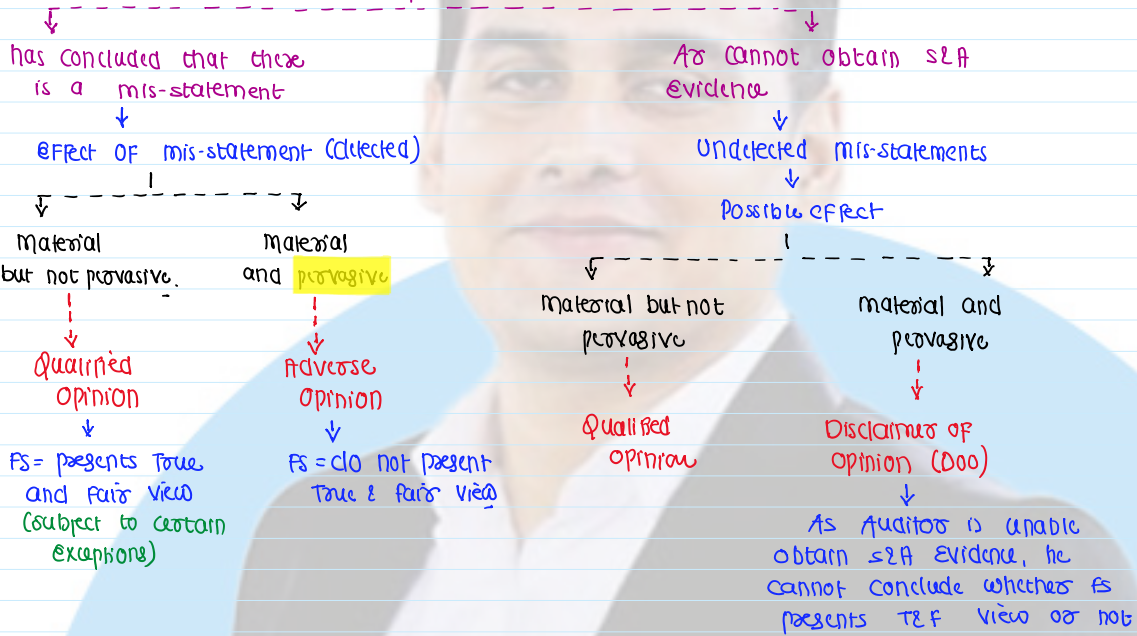 has concluded that there
is a mis-statement
effect of mis-statement (detected)
Material
but not pervasive.
Qualified
opinion
FS = presents True
and fair view
(subject to certain
exceptions)
Material
and pervasive
Adverse
opinion
FS = do not present
True & fair view
Ar cannot obtain S&A
evidence
Undetected mis-statements
Possible effect
Material but not
pervasive
Qualified
opinion
Material and
pervasive
Disclaimer of
opinion (DOO)
As Auditor is unable
obtain S&A Evidence, he
cannot conclude whether FS
presents T&F view or not